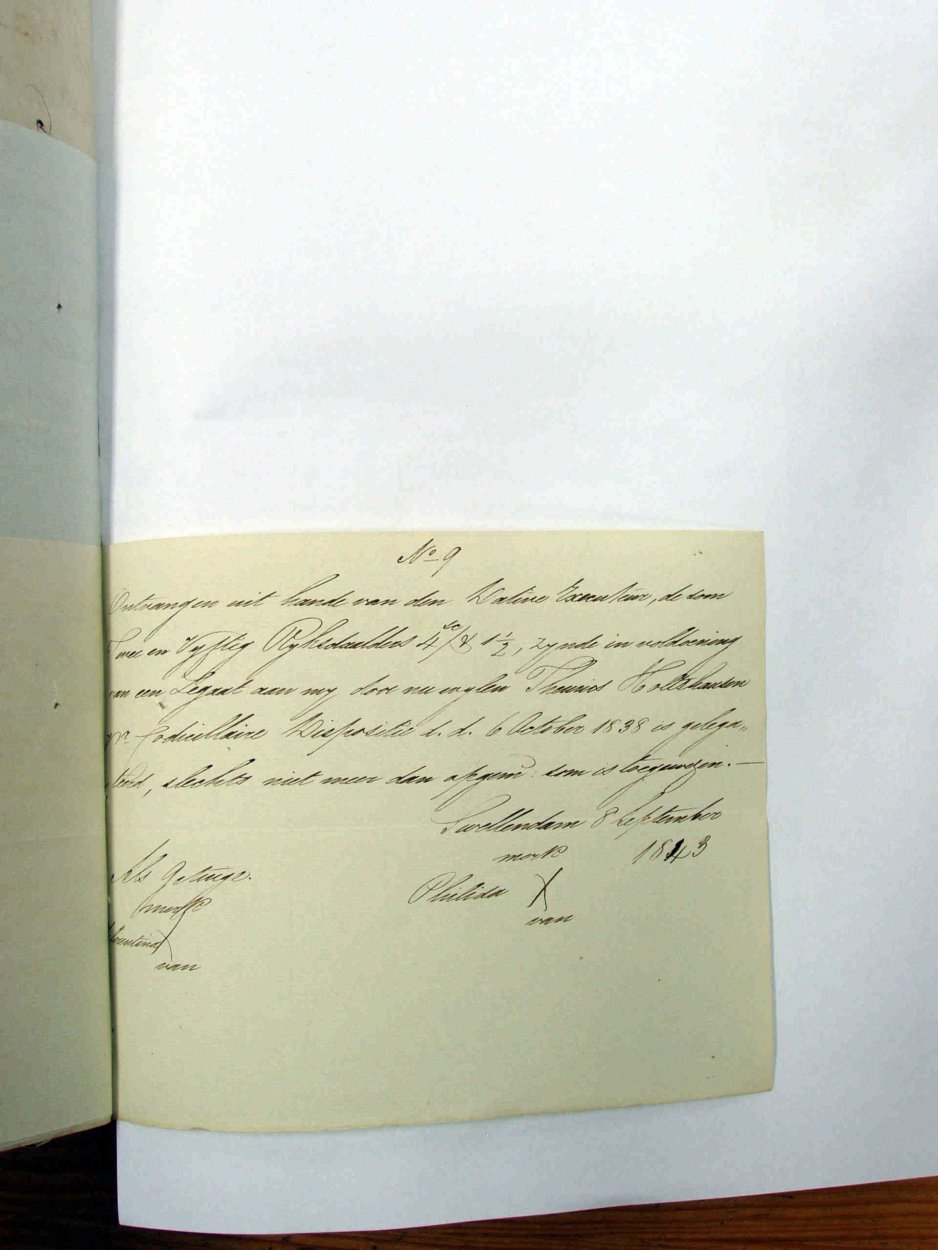 No 9
Ontvangen uit hande van den Dative Executeur, de som
Twee en Vyftig Ryksdaalders 4 sc/& 1 1/2, zynde in voldoening
van een Legaat aan my door nu wylen Theunis Holtshausen
pr. Codicillaire Dispositie d. d. 6 October 1838 is gelega„
teerd, slechts niet meer dan opgem: som is toegewezen. —
Swellendam 8 September
1843
merk
Philida X
van
Als Getuige.
merk
X
van